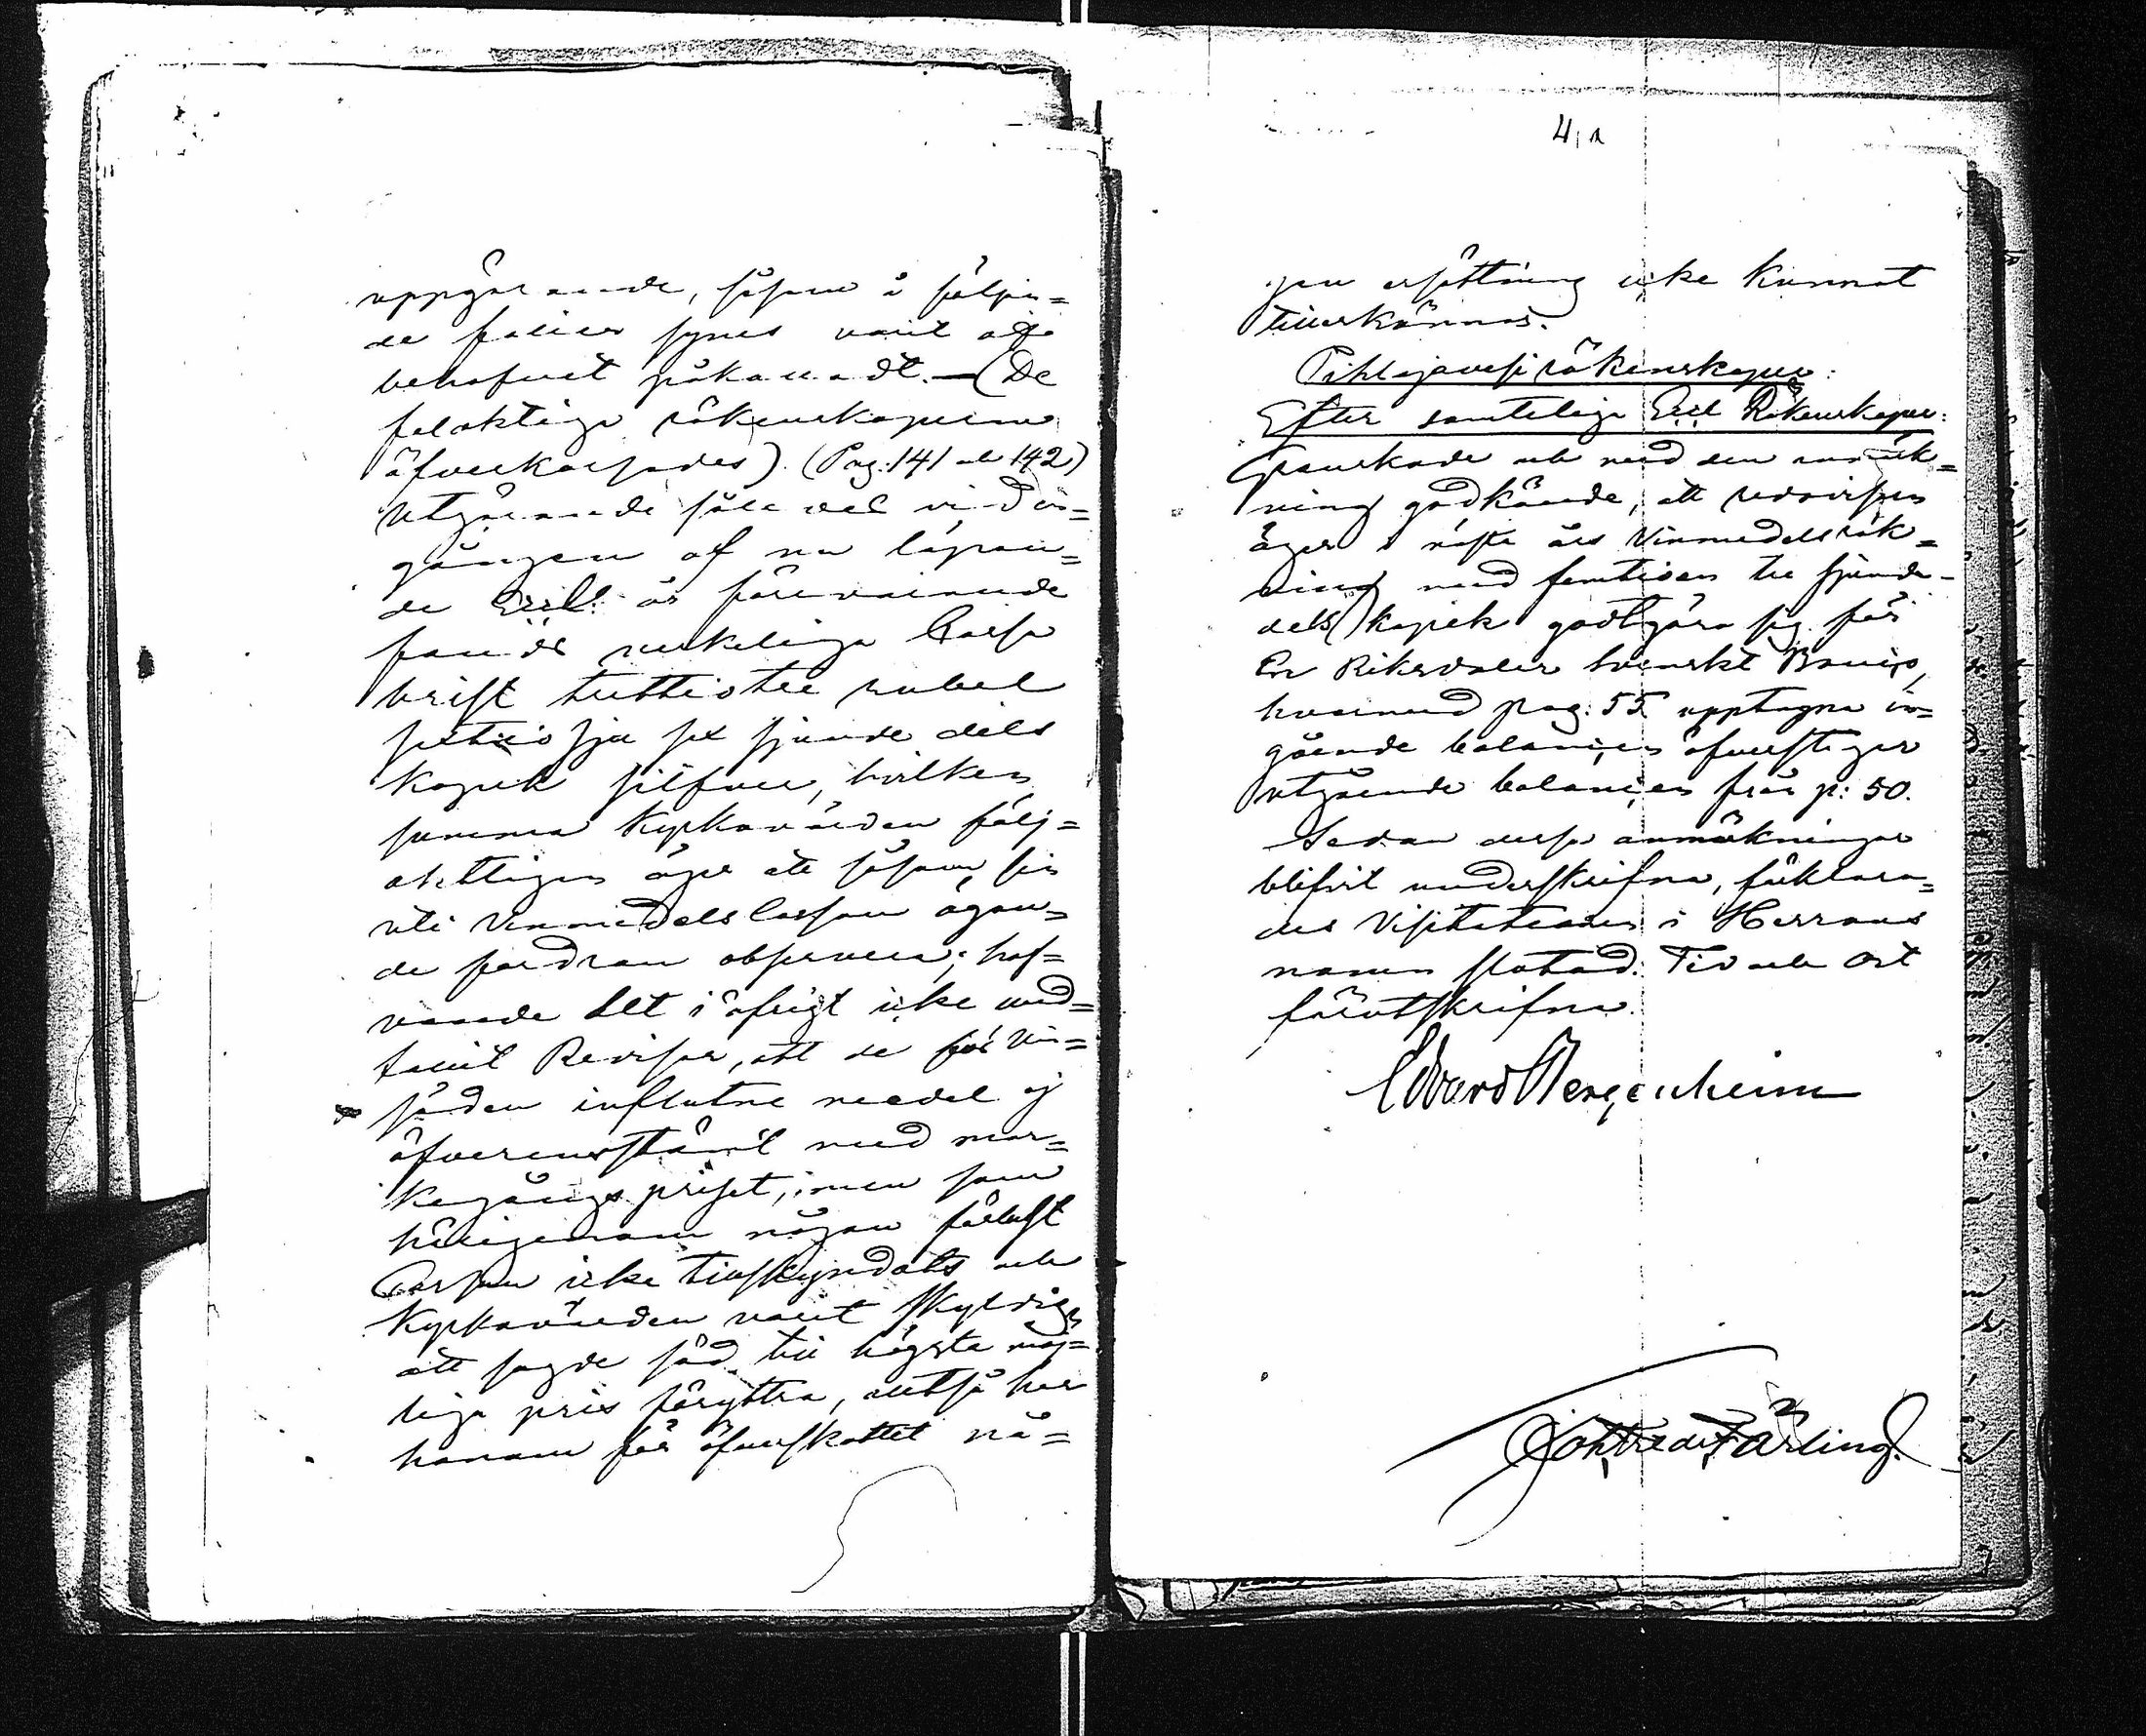 uppgörande, såsom å följan=
de folier synes varit att
behöfvet påkalladt. — (De
felaktiga räkenskaperna
öfverkorsades). (Pag: 141 och 142)
Utgörande således vid in=
gången af nu löpan=
de Eccl: år förevarande
fonds verkeliga Cassa
brist trettiotre rubel
sextiosju sex sjunde dels
kopek silfver, hvilken
summa Kyrkovärden följ=
aktligen äger att såsom sin
uti Vinmedels Cassan ägan=
de fordran observera; haf=
vande det i öfrigt icke und=
fallit Revisor, att de för Vin=
säden influtne medel ej
öfverensstämt med mar=
kegångs priset, men som
härigenom någon förlust
Cassan icke tillskyndats och
Kyrkovärden varit skyldig
att sagde säd till högsta möj=
liga pris föryttra, alltså har
honom för öfverskottet nå=
41
gon ersättning icke kunnat
tillerkännas.
Pihlajavesi räkenskaper:
Efter samtelige Eccl Räkenskaper:
Granskade och med den anmärk=
ning godkände, att redovisaren
äger i nästa års Vinmedelsräk=
ning med femtioen tre sjunde-
dels kopek godtgöra sig för
En Riksdaler Svenskt Banco,
hvarmed pag. 55 upptagne in=
gående balancen öfverstiger
utgående balancen från p: 50.
Sedan dessa anmärkningar
blifvit underskrifna, förklara=
des Visitationen i Herrans
namn slutad. Tid och Ort
förutskrifna.
Edvard Bergenheim
Gottfrid Färling.